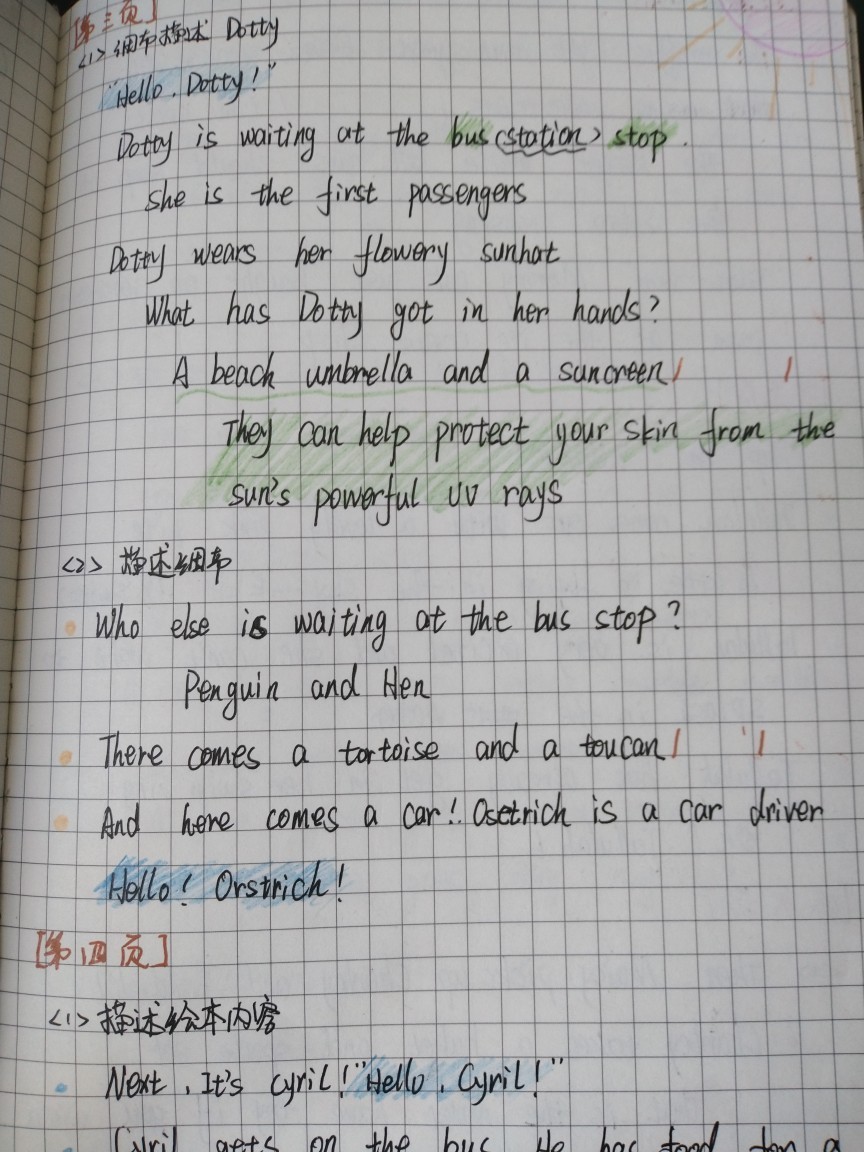 [第三页]
<1> 细节描述 Dotty
"Hello. Dotty!"
Dotty is waiting at the bus (station) stop.
she is the first passengers
Dotty wears her flowery sunhat
What has Dotty got in her hands?
A beach umbrella and a suncreen
They can help protect your skin from the
sun's powerful UV rays
<2> 描述细节
Who else is waiting at the bus stop?
Penguin and Hen
There comes a tortoise and a toucan
And here comes a car! Osetrich is a car driver
Hello! Orstrich!
[第四页]
<1> 描述绘本内容
Next, It's cyril! "Hello, Cyril!"
Cyril gets on the bus. He has food for a